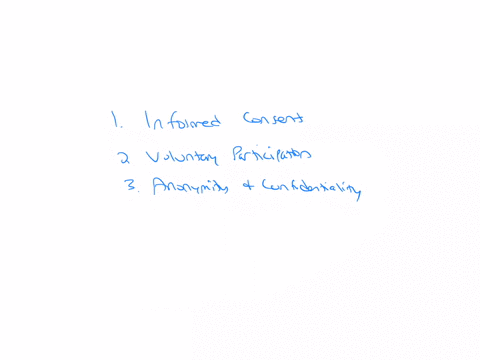 1. Informed Consent
2 Voluntary Participation
3. Anonymity & Confidentiality